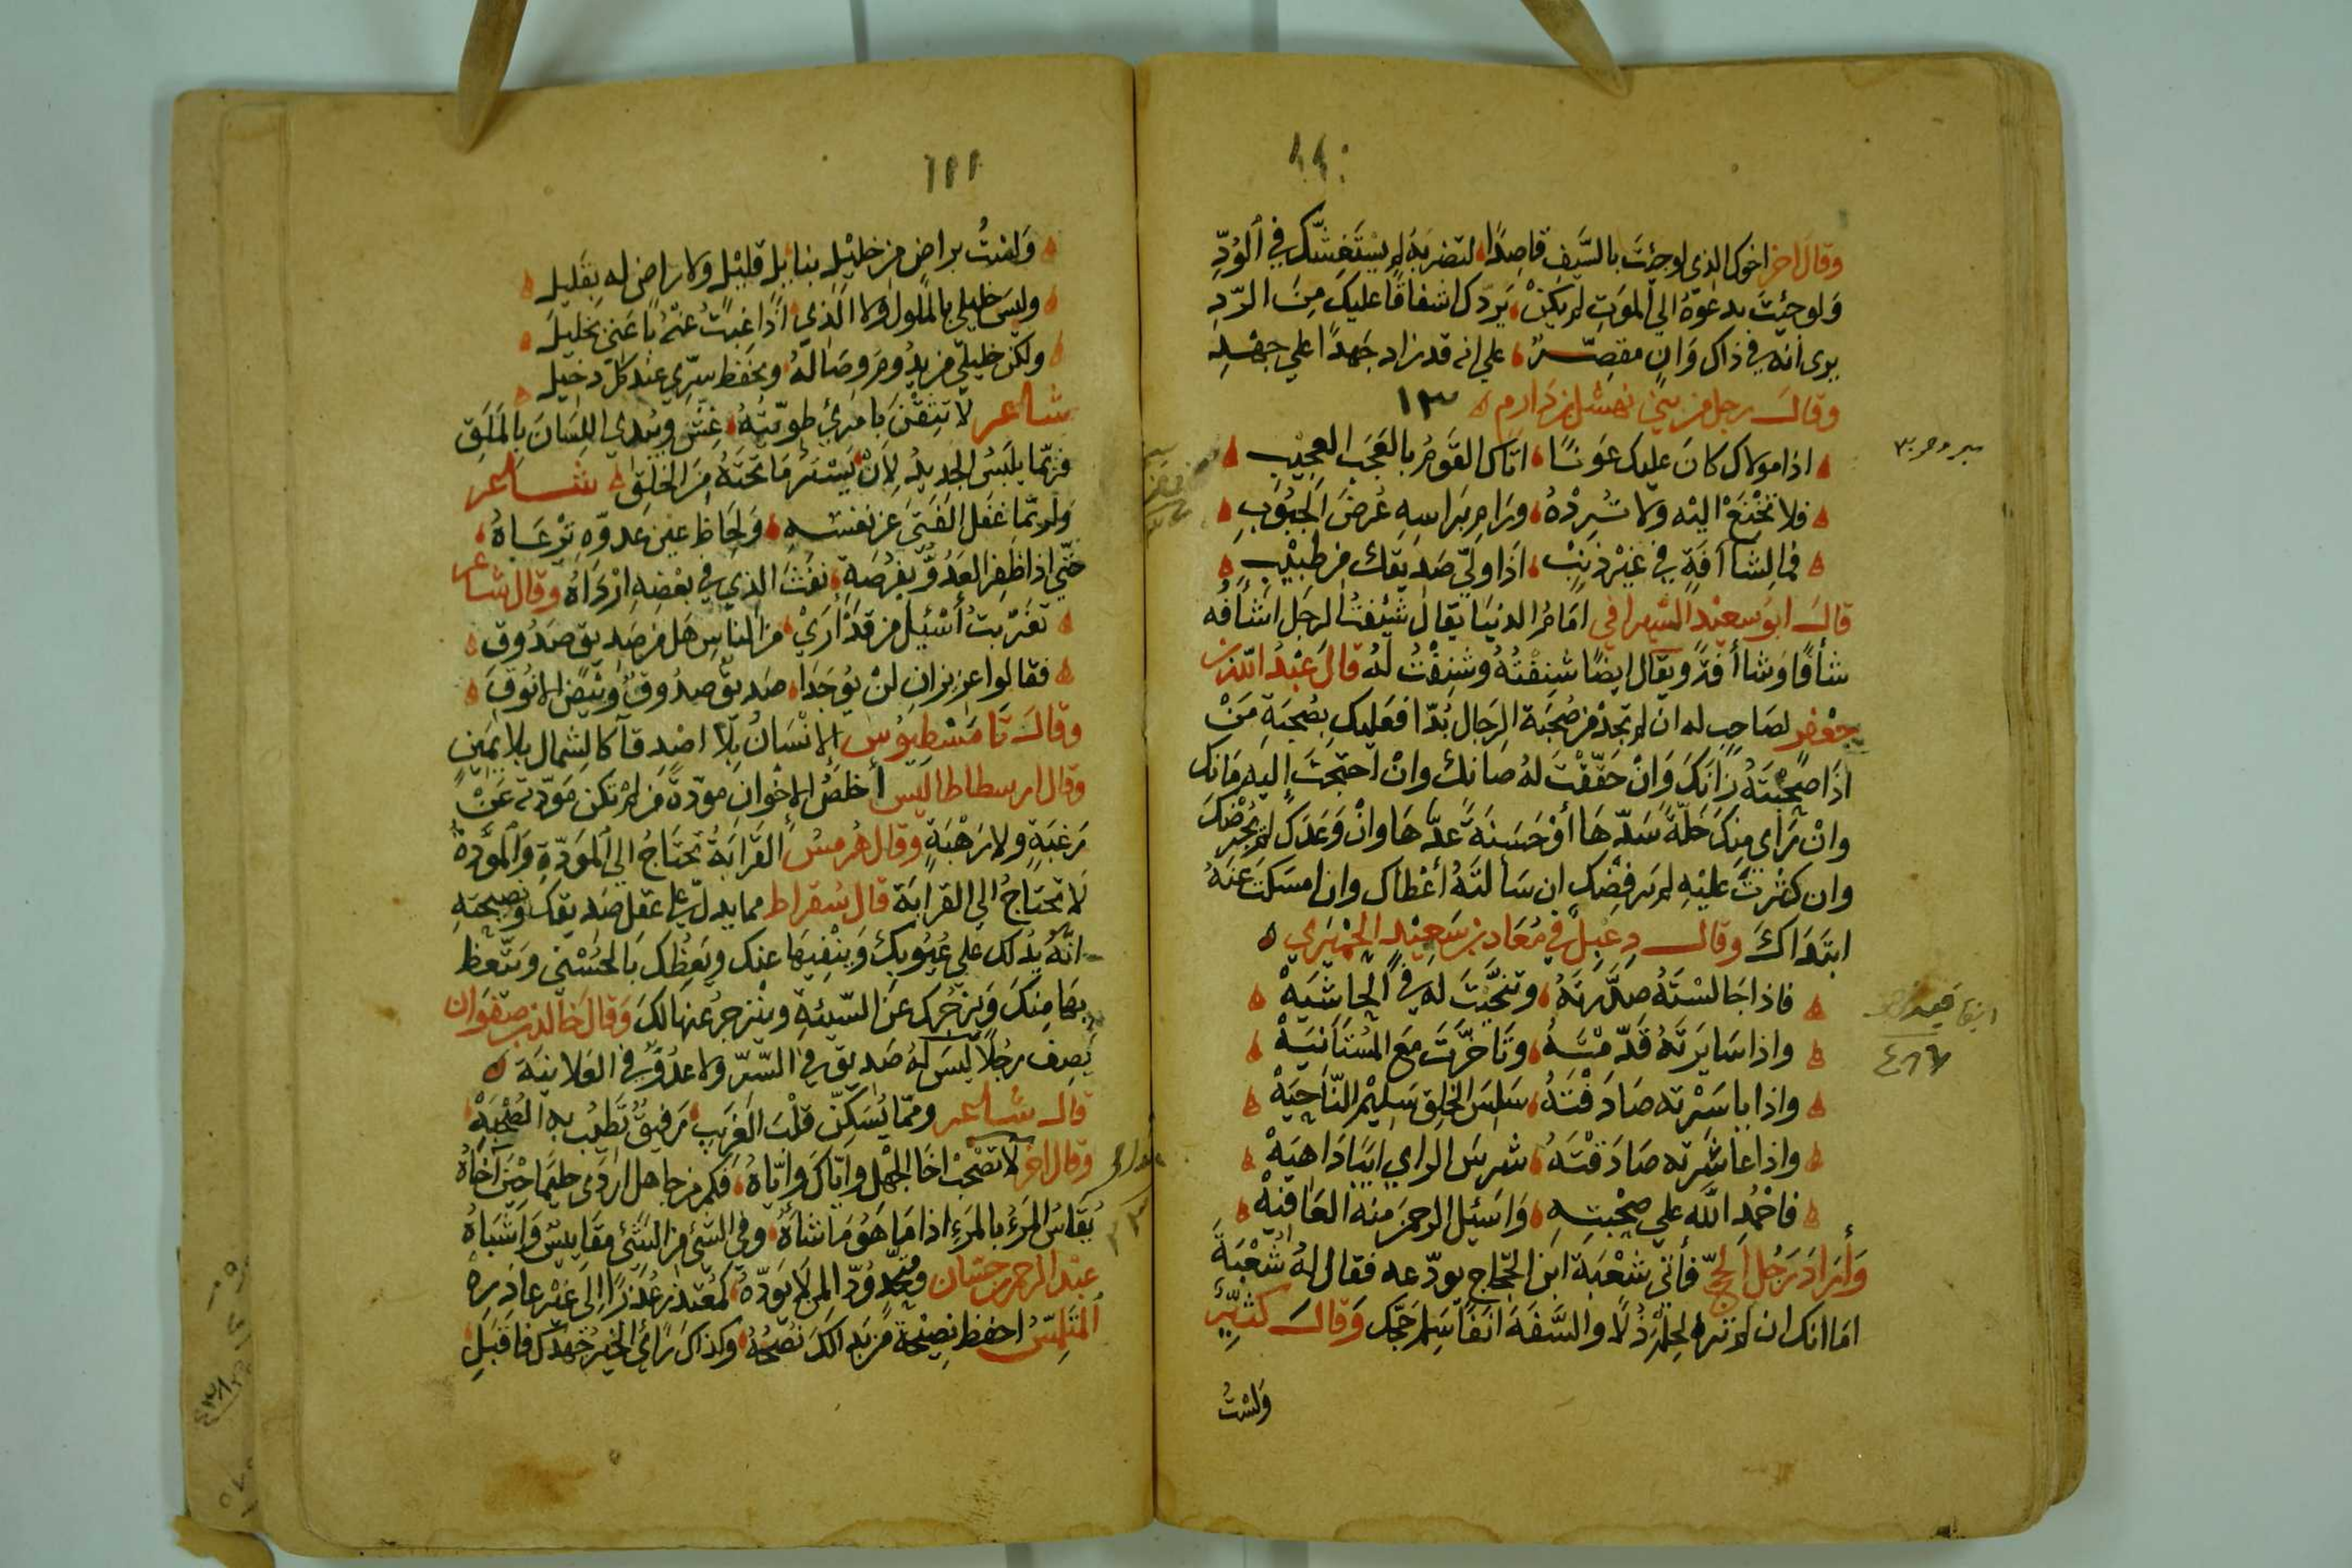 وقال اخر اخوك الذي لو جئت بالسَّيف قاصِدًا لتضربَهُ لم يستغشّك في الوُدِّ
وَلو جئِتَ بدعوهُ الي الموَتِ لم يكنْ يَردّك اشفاقًا عليكَ مِنَ الرّدِ
يرى انه في ذاك وَانٍ مقصّرٌ علي انه قد زاد جَهدًا علي جهْدِ
وقالَ رجل من بني نهشل بن دَارم
اذا مولاك كانَ عليك عَونًا اتاك القومُ بالعَجَب العجيْبِ
فلا تخْنَعْ اليْه ولا تُرِدْهُ ورَامِ برَاسِهِ عُرضَ الجبُوبِ
فما لِشأافَةٍ في غَيْر ذنبٍ اذَا ولّي صَديقك من طبيْبِ
قال ابو سعيْد السّيرافي امَامُ الدنيَا يقال شئِفتُ الرجَل اشأفُه
شأفًا وَشاأفةً ويقال ايضًا شنِفتُهُ وشنِفْتُ لهُ قالَ عبْدُ اللّه بن
جعْفر لصَاحبٍ له ان لم تجدْ من صُحبَة الرجَال بُدّا فعَليك بصُحبَةِ مَنْ
اذَا صَحِبْتَهُ زانكَ وَانْ حَقّقْتَ لهُ صانكَ وانْ احتجتَ اليه مَانك
وانْ رَأى منِكَ خلّةً سَدّهَا أوْ حَسَنةً عدّهَا وانْ وَعَدَك لمْ يجْرضْكَ
وان كثرتَ عليْهِ لم يرفضْك ان سَألتَهُ أعْطاك وان امسَكتَ عنهُ
ابتَدَاكَ وقال دِعْبل في مُعَاد بن سَعيْد الحمْيَري
فاذا جَالسْتَهُ صَدَّرتَهُ وتنحَّيْتَ لهُ في الحاشيَهْ
واذا سَايرتَهُ قدّمْتَهُ وتاخّرْتَ مَعَ المُسْتَانيَهْ
واذا ياسَرْته صَادَفتَهُ سَلِسَ الخلِق سَليْم النّاحيَهْ
واذا عاشرته صَادَفتَهُ شرسَ الراي ابيّا دَاهيَهْ
فاحْمُدِ اللّه علي صحْبتِهِ وَاسَئل الرحمن منه العَافيَهْ
وَأرَادَ رَجُل الحجّ فأتي شعْبَة ابن الحجّاج يودّعه فقال لهُ شُعْبَة
امَا انك ان لم تر الحِلمَ ذُلًا والسَّفَهَ انفًا سَلِم حَجّك وَقالَ كثيِّر
وَلسْتُ
وَلسْتُ براضٍ من خليْلٍ بنايلٍ قليْل ولا راضٍ له بقَليل
وليسَ خليلي بالملول ولا الذي اذَا غبْتُ عنْهُ باعَني بخليل
ولكن خليلي من يدُومُ وصَالهُ ويحفظ سِرّي عند كلّ دخيل
شاعر لا تثِقنَّ بامرئٍ طويّتُهُ غشٌّ ويبُدي اللِسَان بالمَلَقِ
فربّما يلبَسُ الجديدُ لأنْ يَسْتر مَا تحتَهُ من الخلَقِ شاعر
ولربّما غفل الفتى عن نفسِهِ وَلحِاظ عين عدوّهِ ترْعَاهُ
حتّي اذا ظفر العَدُوُّ بفرْصَةٍ نفثَ الذي في بغضِهِ ارْدَاهُ وقال شاعر
تغرّبتُ أسْئل من قد أرَيْ من الناسِ هَل من صَديق صَدُوقِ
فقالوا عزيزان لنْ يوُجَدَا صَديقٌ صدُوقٌ وبَيْضُ الانوُقِ
وقالَ ثامَسْطيُوس الانْسَانُ بلا اصْدِقآ كالشمال بلا يميْنٍ
وقال ارسطاطاليْس أخلصُ الاخْوان موَدّةً مَن لمْ تكن مَوّدته عَنْ
رَغبَةٍ ولا رَهْبَةٍ وقال هُرمسُ القرابَةُ تحتَاجُ الي المَوَدّةِ والموَدّةُ
لا تحتاجُ الي القرَابَة قال سُقراط مما يدلّ علي عقل صَديقك ونصيحته
انّهُ يدُلك علي عيُوبكَ وَينْفِيها عنك ويَعِظكَ بالحُسْنى ويَتّعظ
بهَا منكَ وَيزجُرك عَن السّيئةِ وينزجِرُ عنها لكَ وَقالَ خالد بن صَفوَان
يَصِف رجُلاً ليسَ لهُ صَديق في السّرّ ولا عدُوٌّ في العَلانيَة
قال شاعر وممّا يُسَكنّ قلْبَ الغَريبِ رَفيقٌ تَطِيْبُ به الصُّحْبَهْ
وقال اخر لا تصْحبْ اخَا الجهْل وايّاك وَايّاهُ فكم من جاهل اردَى حليمًا حيْن آخاهُ
يُقَاسُ المرءُ بالمَرءِ اذا مَا هوُ مَاشاهُ وفي الشئ من الشئ مقاييسٌ وَاشبَاهُ
عبْد الرحمن بن حسّان ومُتّخذٍ وُدًّا لِمن لا يوَدّهُ كمُعْتذِرٍ عُذرًا الي غيْر عاذره
المتَلِمّسُ احفظ نصيْحَة من بَدا لكَ نصْحُهُ وكذاك رأي الخير جَهْدَك فاقبَلِ